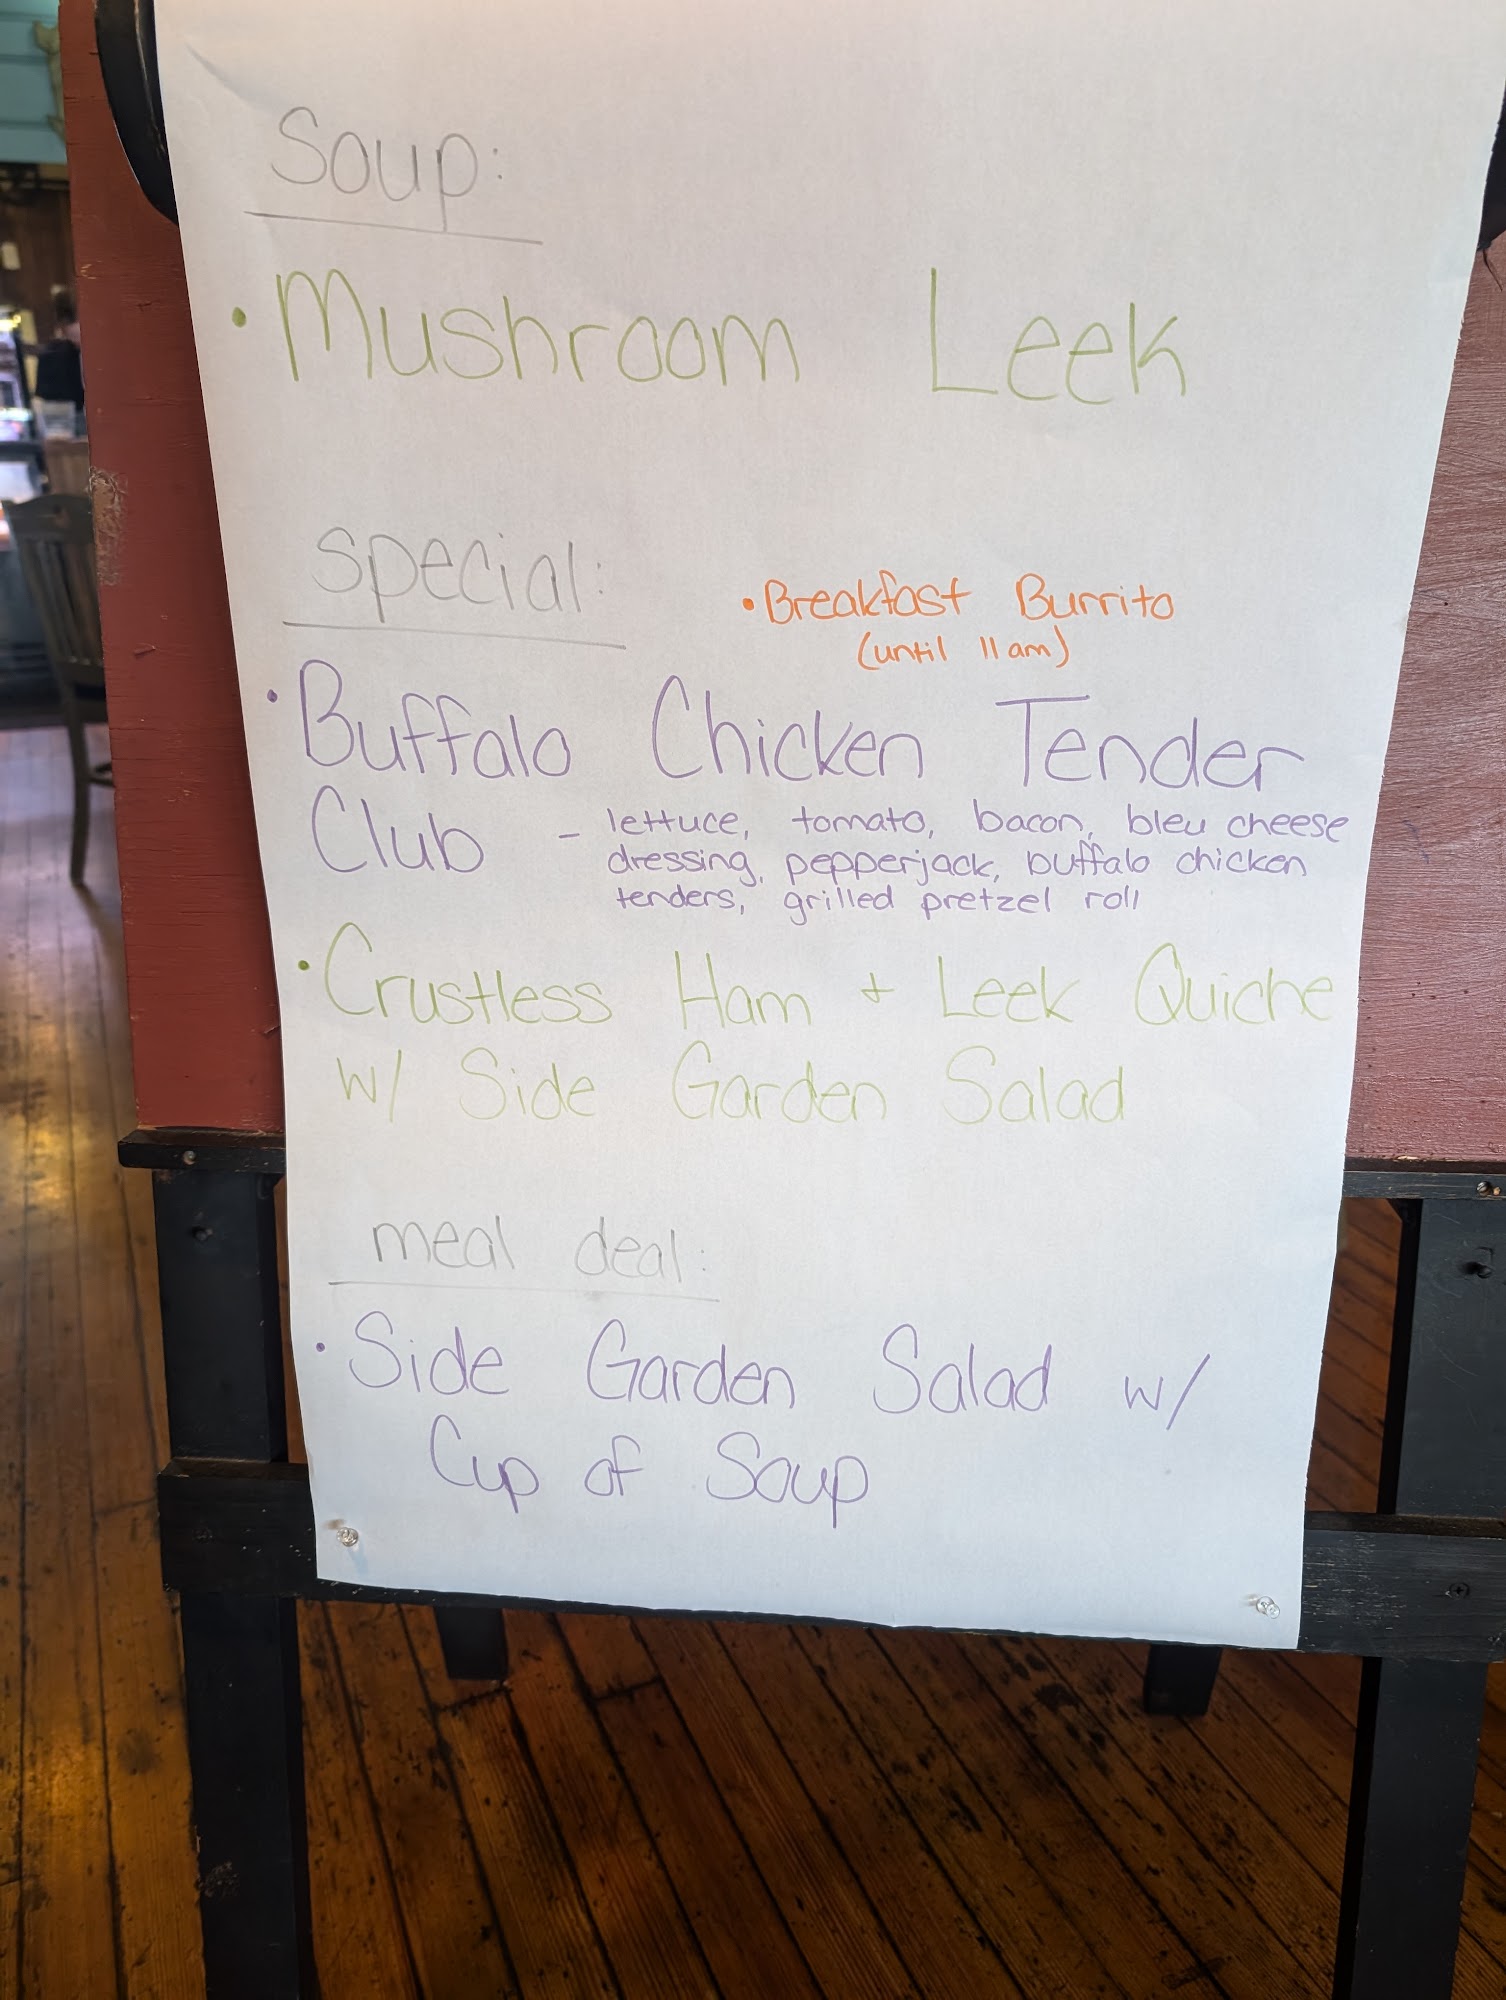 Soup:
• Mushroom Leek
Special:
• Breakfast Burrito
(until 11am)
• Buffalo Chicken Tender
Club - lettuce, tomato, bacon, bleu cheese
dressing, pepperjack, buffalo chicken
tenders, grilled pretzel roll
• Crustless Ham + Leek Quiche
w/ Side Garden Salad
meal deal:
• Side Garden Salad w/
Cup of Soup